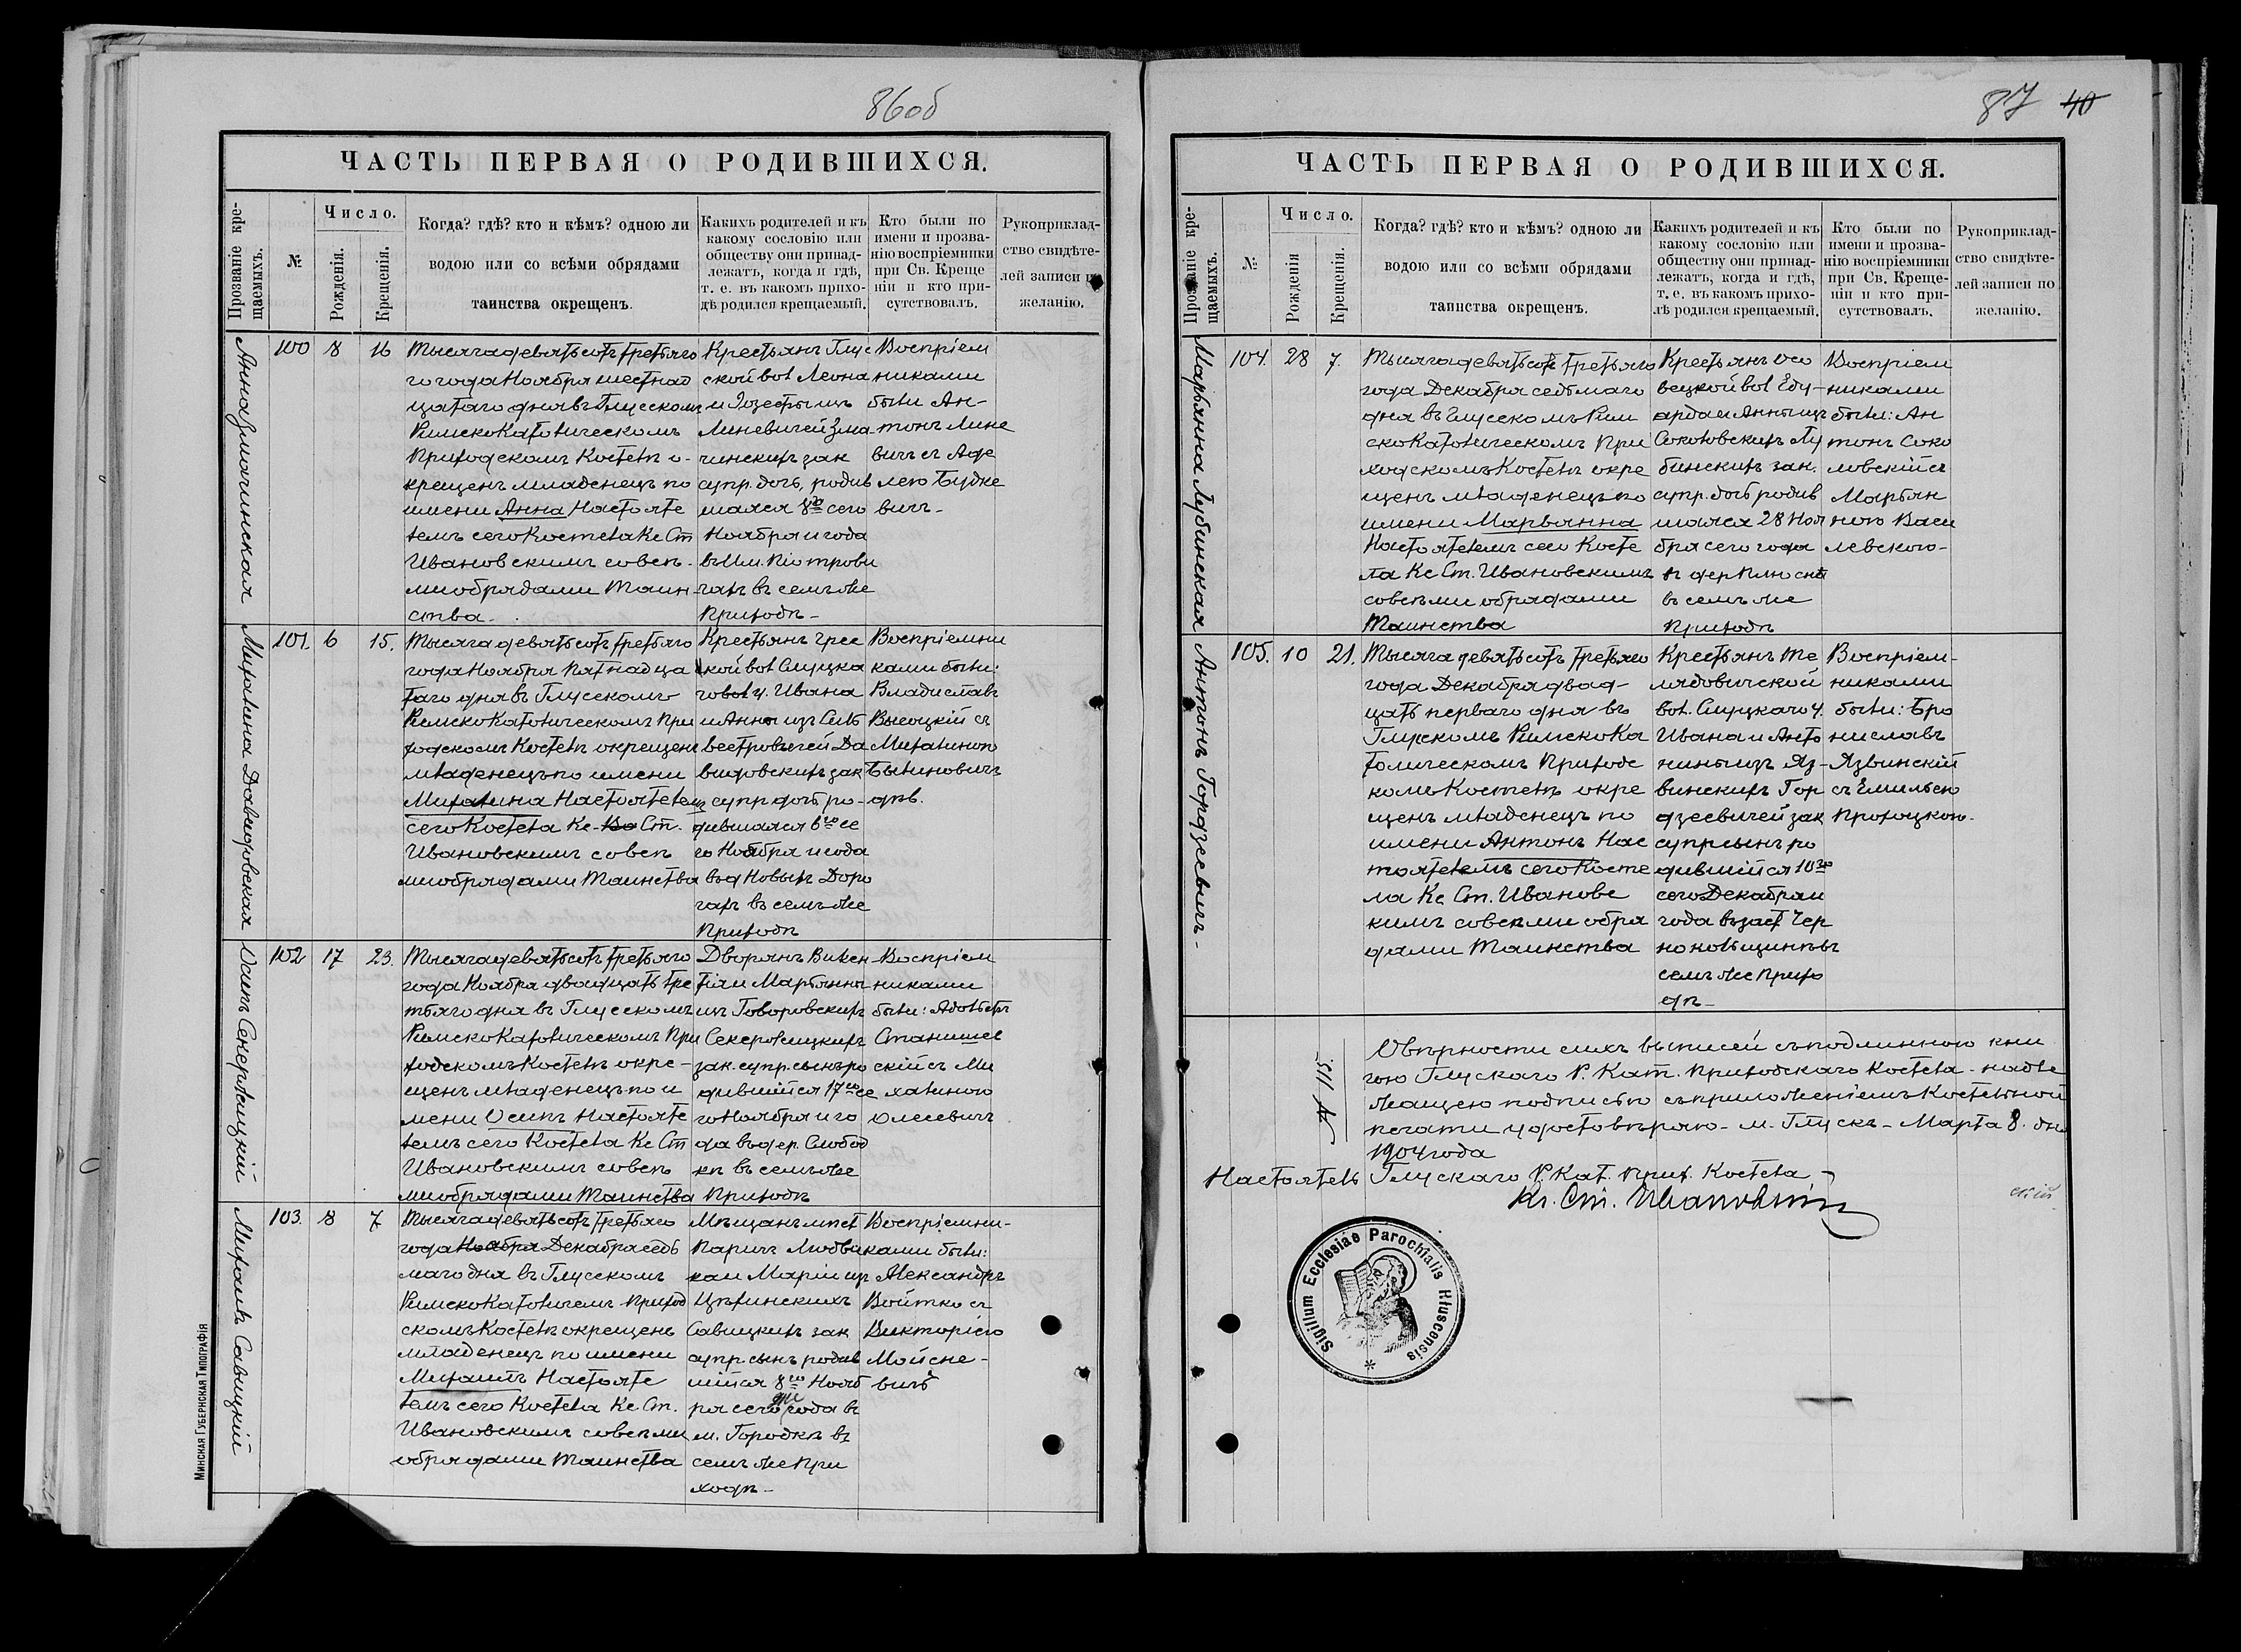 86об
ЧАСТЬ ПЕРВАЯ О РОДИВШИХСЯ.
Прозваніе кре-
щаемыхъ.
№
Число.
Рожденія.
Крещенія.
Когда? гдѣ? кто и кѣмъ? одною ли
водою или со всѣми обрядами
таинства окрещенъ.
Какихъ родителей и къ
какому сословію или
обществу они принад-
лежатъ, когда и гдѣ,
т. е. въ какомъ прихо-
дѣ родился крещаемый.
Кто были по
имени и прозва-
нію воспріемники
при Св. Креще
ніи и кто при-
сутствовалъ.
Рукоприклад-
ство свидѣте-
лей записи
желанію.
Анна Змачинская
100
8
16
Тысяча девятьсотъ третья
го года Ноября шестнад
цатаго дня въ Глусскомъ
РимскоКатолическомъ
Приходскомъ Костелѣ о-
крещенъ младенецъ по
имени Анна Настояте
лемъ сего Костела Кс Ст
Ивановскимъ со всѣ-
ми обрядами Таин-
ства.
Крестьянъ Глус
ской вол Леона
и Юзефы изъ
Линевичей Зма
чинскихъ зак
супр. дочь, родив
шаяся 8го сего
Ноября и года
въ Им. Піотрови
чахъ въ семъ же
Приходѣ-
Воспріем
никами
были Ан-
тонъ Лине
вичъ съ Аде
лею Будке
вичъ-
Михалина Давидовская
101.
6
15.
Тысяча девятьсотъ третьяго
года Ноября Пятнадца
таго дня въ Глусскомъ
РимскоКатолическомъ При
ходскомъ Костелѣ окрещенъ
младенецъ по имени
Михалина Настоятелемъ
сего Костела Кс. Ст.
Ивановскимъ со всѣ
ми обрядами Таинства
Крестьянъ Грес
кой вол Слуцка
го у. Ивана
и Анны изъ Силь
вестровичей Да
видовскихъ зак
супр дочь ро-
дившаяся 6го се
го Ноября и года
въ д Новыхъ Доро
гахъ въ семъ же
Приходѣ
Воспріемни
ками были:
Владиславъ
Высоцкій съ
Михалиною
Былиновичъ
дѣв.
Осипъ Секержицкій
102
17
23.
Тысяча девятьсотъ третьяго
года Ноября двадцать тре
тьяго дня въ Глусскомъ
РимскоКатолическомъ При
ходскомъ Костелѣ окре-
щенъ младенецъ по и
мени Осипъ Настояте
лемъ сего Костела Кс Ст
Ивановскимъ со всѣ
ми обрядами Таинства
Дворянъ Викен
тія и Марьянны
изъ Говоровскихъ
Секержицкихъ
зак. супр. сынъ ро
дившійся 17го се
го Ноября и го
да въ дер. Слобод
кѣ въ семъ же
Приходѣ
Воспріем
никами
были: Адольфъ
Станишев
скій съ Ми
халиною
Олесевичъ
Михаилъ Савицкій
103.
8
7
Тысяча девятьсотъ третьяго
года Ноября Декабря седь
маго дня въ Глусскомъ
РимскоКатоличемъ Приход
скомъ Костелѣ окрещенъ
младенецъ по имени
Михаилъ Настояте
лемъ сего Костела Кс Ст.
Ивановскимъ со всѣми
обрядами Таинства
Мѣщанъ мѣст
Паричъ Людви
ка и Маріи изъ
Савицкихъ зак
супр. сынъ родив
шійся 8го Нояб
ря сего же года въ
м. Городкѣ въ
семъ же При
ходѣ-
Воспріемни-
ками были:
Александръ
Войтко съ
Викторіею
Мойсие-
вичъ
Минская Губернская Типографія
87 40
ЧАСТЬ ПЕРВАЯ О РОДИВШИХСЯ.
Прозваніе кре-
щаемыхъ.
№
Число.
Рожденія
Крещенія.
Когда? гдѣ? кто и кѣмъ? одною ли
водою или со всѣми обрядами
таинства окрещенъ.
Какихъ родителей и къ
какому сословію или
обществу они принад-
лежатъ, когда и гдѣ,
т. е. въ какомъ прихо-
дѣ родился крещаемый.
Кто были по
имени и прозва-
нію воспріемники
при Св. Креще-
ніи и кто при-
сутствовалъ.
Рукоприклад-
ство свидѣте-
лей записи по
желанію.
Марьянна Лубинская
104.
28
7.
Тысяча девятьсотъ третьяго
года Декабря седьмаго
дня въ Глусскомъ Рим
скоКатолическомъ При
ходскомъ Костелѣ окре
щенъ младенецъ по
имени Марьянна
Настоятелемъ сего Косте
ла Кс Ст. Ивановскимъ
со всѣми обрядами
Таинства
Крестьянъ Осо
вецкой вол Эду-
арда и Анны изъ
Соколовскихъ Лу
бинскихъ зак.
супр. дочь родив
шаяся 28 Ноя
бря сего года
въ семъ же
Приходѣ
Воспріем
никами
были: Ан
тонъ Соко
ловскій съ
Марьян
ною Васи
левского-
Антонъ Гордзеевичъ-
105.
10
21.
Тысяча девятьсотъ третьяго
года Декабря двад-
цать перваго дня въ
Глускомъ РимскоКа
толическомъ Приходс
комъ Костелѣ окре
щенъ младенецъ по
имени Антонъ Нас
тоятелемъ сего Косте
ла Кс Ст. Ивановс
кимъ со всѣми обря
дами Таинства
Крестьянъ Те
лядовичской
вол. Слуцкаго у.
Ивана и Анто
нины изъ Яз-
винскихъ Гор
дзеевичей зак
супр сынъ ро
дившійся 10го
сего Декабря и
года въ заст Чер
семъ же Прихо
дѣ-
Воспріем-
никами
были: Бро
ниславъ
Язвинскій
съ Емильею
Прохоцкою.
№ 115.
О вѣрности сихъ выписей съ подлинною кни
гою Глускаго Р. Кат. Приходскаго Костела - надле
жащею подписью съ приложеніемъ Костельной
печати удостовѣряю - м. Глускъ - Марта 8. дня
1904 года
Настоятель Глускаго Р. Кат. Прих. Костела -
Кс. Ст. Ивановскій
скій
Sigillum Ecclesiae Parochialis Hluscensis